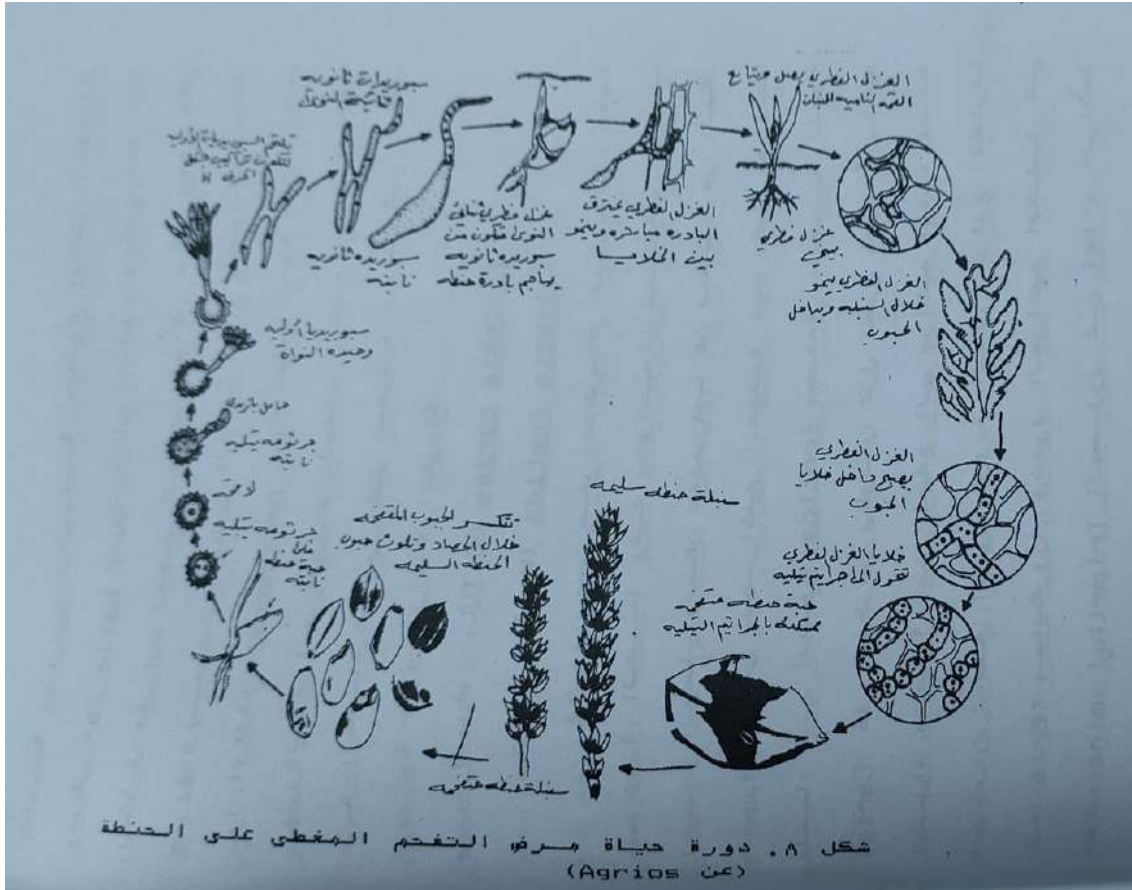 سبوريدات ثانويه
ثنائية النوى
تلتحم السبوريديا الأوليه
لتتكون تراكيب بشكل
الحرف H
سبوريده ثانويه
نابته
غزل فطري ثنائي
النوى متكون من
سبوريده ثانويه
يهاجم بادرة حنطه
الغزل الفطري يخترق
البادره مباشره وينمو
بين الخلايا
الغزل الفطري يصل ويتابع
القمه الناميه للنبات
غزل فطري
بيني
الغزل الفطري ينمو
خلال السنبله وبداخل
الحبوب
الغزل الفطري
يصبح داخل خلايا
الحبوب
خلايا الغزل الفطري
تتحول الى جراثيم تيليه
حبة حنطه متفحمه
ممتلئه بالجراثيم التيليه
سنبلة حنطه سليمه
سنبلة حنطه متفحمه
تتكسر الحبوب المتفحمه
خلال الحصاد وتلوث حبوب
الحنطه السليمه
سبوريديا أوليه
وحيده النواة
حامل بازيدي
جرثومه تيليه
نابته
لاقحه
جرثومه تيليه
حبة حنطه
نابته
شكل ٨. دورة حياة مرض التفحم المغطى على الحنطة
(عن Agrios)